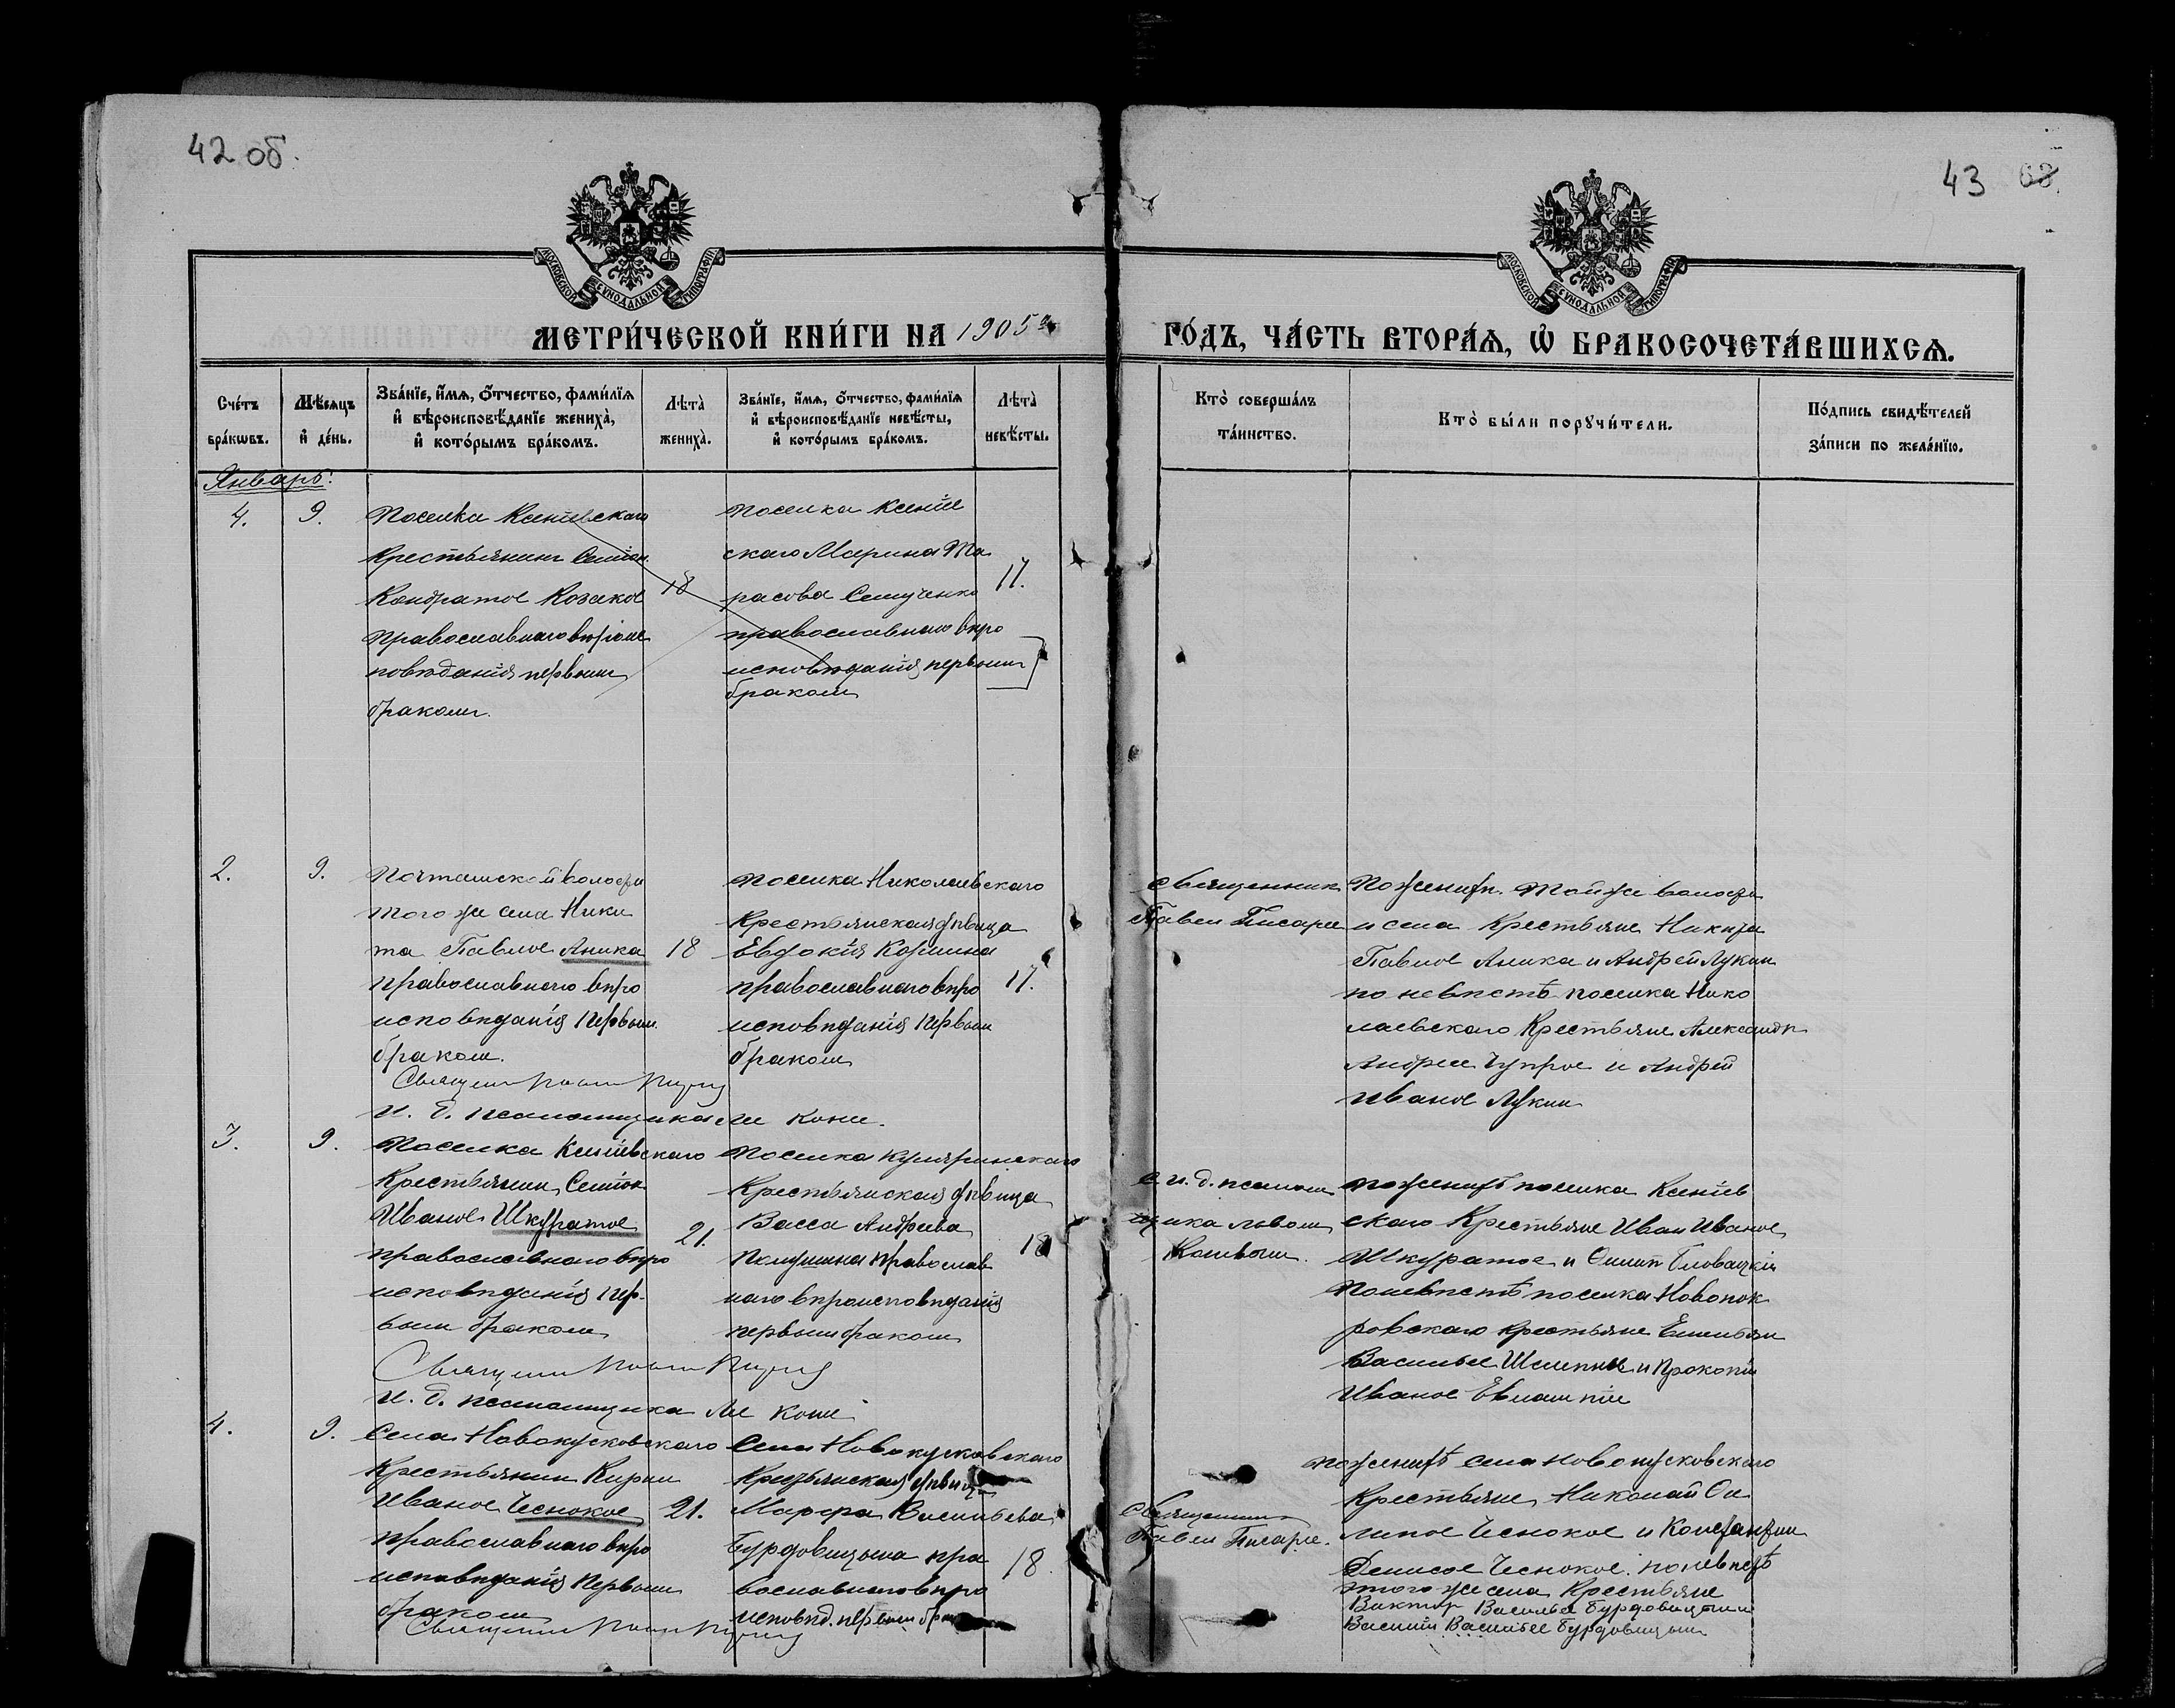 42 об.
43 68.
МОСКОВСКОЙ СѴНОДАЛЬНОЙ ТИПОГРАФІИ
МОСКОВСКОЙ СѴНОДАЛЬНОЙ ТИПОГРАФІИ
МЕТРИ́ЧЕСКОЙ КНИ́ГИ НА 1905
ГО́ДЪ, ЧА́СТЬ ВТОРА́Ѧ, Ѡ БРАКОСОЧЕТА́ВШИХСѦ.
Сче́тъ бра́кѡвъ.
Мѣ́сѧцъ и҆ де́нь.
Зва́нїе, и҆́мѧ, о҆́тчество, фами́лїѧ и҆ вѣроисповѣ́данїе жениха̀, и҆ кото́рымъ бра́комъ.
Лѣта̀ жениха̀.
Зва́нїе, и҆́мѧ, о҆́тчество, фами́лїѧ и҆ вѣроисповѣ́данїе невѣ́сты, и҆ кото́рымъ бра́комъ.
Лѣта̀ невѣ́сты.
Кто̀ соверша́лъ та́инство.
Кто̀ бы́ли порꙋчи́тели.
По́дпись свидѣ́телей за́писи по жела́нїю.
Январь:
4. 9.
Поселка Ксеніевскаго
Крестьянинъ Семіон
Кондратов Козаков
православнаго вѣроис
повѣданія первымъ
бракомъ.
18
Поселка Ксеніев
скаго Марина Та
расова Семученко
православнаго вѣро
исповѣданія первымъ
бракомъ
17.
2. 9.
волости
того же села Ники
та Павлов Аника
православнаго вѣро
исповѣданія первым
браком.
18
Поселка Николаевскаго
Крестьянская дѣвица
Евдокія
православнаго вѣро
исповѣданія первым
браком
17.
Священник
Павел Писарев
По жениху. Той же волости
и села Крестьяне Никита
Павлов Аника и Андрей Лукин
по невѣстѣ поселка Нико
лаевскаго Крестьяне Александр
Андреев Чупров и Андрей
Иванов Лукин
Священ
И. д. псаломщика
3. 9.
Поселка Ксеніевскаго
Крестьянин Семіон
Иванов Шкуратов
православнаго вѣро
исповѣданія пер-
вым браком
21.
Поселка
Крестьянская дѣвица
Васса Андреева
православ
наго вѣроисповѣданія
первым браком
18
с и. д. псалом
щика
по жениху поселка Ксеніев
скаго Крестьяне Иван Иванов
Шкуратов и
По невѣстѣ поселка Новопок
ровскаго крестьяне Емельян
Васильев и Прокопій
Иванов
Священ
И. д. псаломщика
4. 9.
Села Новокусковскаго
Крестьянин Кирил
Иванов Чесноков
православнаго вѣро
исповѣданія первым
браком
21.
Села Новокусковскаго
Крестьянская дѣвица
Марфа Васильева
Бурдовицына пра
вославнаго вѣро
исповѣд. первым брак
18.
Священник
Павел Писарев.
по жениху села Новокусковскаго
Крестьяне Николай Фи
липов Чесноков и Константин
Денисов Чесноков. по невѣстѣ
того же села Крестьяне
Виктор Васильев Бурдовицын и
Василий Васильев Бурдовицын
Священ